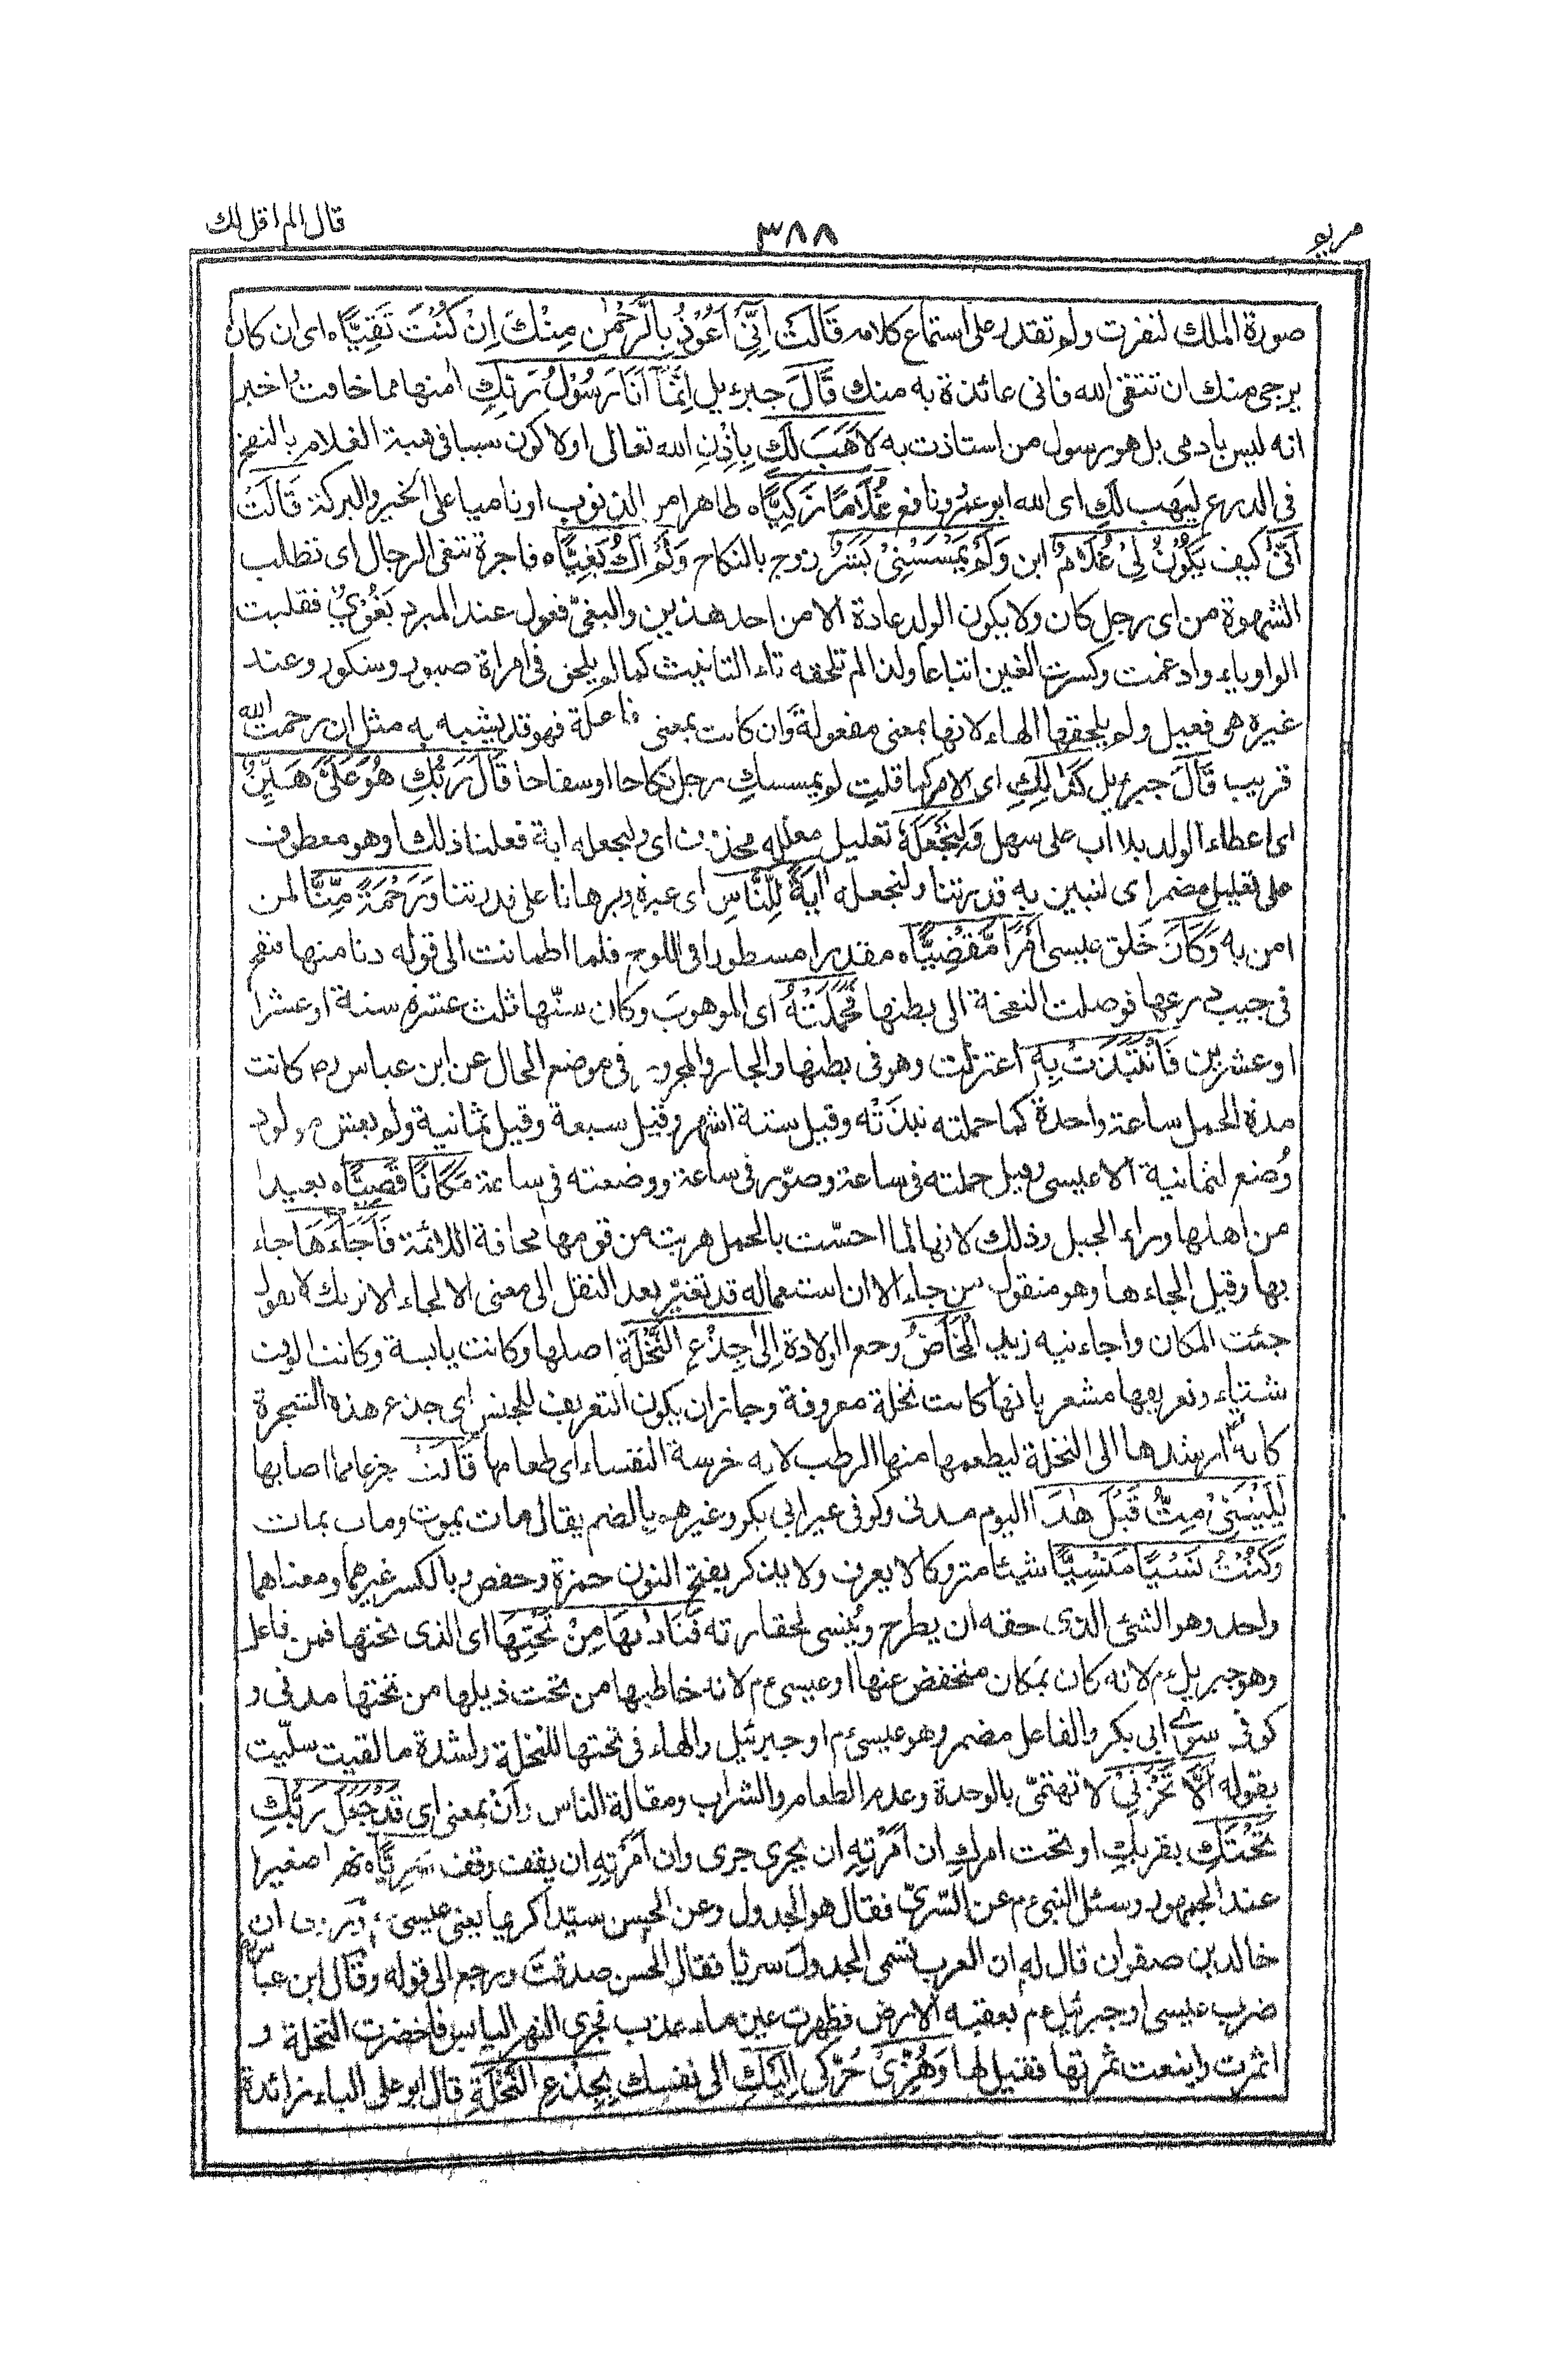 مريم
٣٨٨
قال الم اقل لك
صورة الملك لنفرت ولم تقدر على استماع كلامه قَالَتْ اِنِّىْٓ اَعُوْذُ بِالرَّحْمٰنِ مِنْكَ اِنْ كُنْتَ تَقِيًّا ه اى ان كان
يرجى منك ان تتقى الله فانى عائذة به منك قَالَ جبرءيل اِنَّمَآ اَنَا رَسُوْلُ رَبِّكِ امنها مما خافت واخبر
انه ليس بادمى بل هو رسول من استاذت به لِاَهَبَ لَكِ بِاِذْنِ الله تعالى او لاكون سببا فى هبة الغلام بالنفخ
فى الدرع ليهب لكِ اى الله ابو عمرو ونافع غُلَامًا زَكِيًّا ه طاهرا من الذنوب او ناميا على الخير والبركة قَالَتْ
اَنّٰى كيف يَكُوْنُ لِىْ غُلَامٌ ابن وَلَمْ يَمْسَسْنِىْ بَشَرٌ زوج بالنكاح وَلَمْ اَكُ بَغِيًّا ه فاجرة تتفى الرجال اى تطلب
الشهوة من اى رجل كان ولا يكون الولد عادة الا من احد هذين والبغىّ فعول عند المبرد بَغُوْىٌ فقلبت
الواو ياء وادغمت وكسرت الغين اتباعا ولذا لم تلحقه تاء التانيث كما لم يلحق فى امراة صبور وشكور وعند
غيره هى فعيل ولم يلحقها الهاء لانها بمعنى مفعولة وان كانت بمعنى فاعلة فهو قد يشبه به مثل ان رحمت الله
قريب قَالَ جبرءيل كَذٰلِكِ اى الامر كما قلتِ لم يمسسكِ رجل نكاحا او سفاحا قَالَ رَبُّكِ هُوَ عَلَىَّ هَيِّنٌ
اى اعطاء الولد بلا اب على سهل وَلِنَجْعَلَهٗٓ تعليل معلله محذوف اى ولنجعله اية فعلنا ذلك او هو معطوف
على تعليل مضمر اى لنبين به قدرتنا ولنجعله اٰيَةً لِّلنَّاسِ اى عبرة وبرهانا على قدرتنا وَرَحْمَةً مِّنَّا لمن
امن به وَكَانَ خلق عيسى اَمْرًا مَّقْضِيًّا ه مقدرا مسطورا فى اللوح فلما اطمانت الى قوله دنا منها فنفخ
فى جيب درعها فوصلت النفخة الى بطنها فَحَمَلَتْهُ اى الموهوبَ وكان سنّها ثلث عشرة سنة او عشرا
او عشرين فَانْتَبَذَتْ بِهٖ اعتزلت وهو فى بطنها والجار والمجرور فى موضع الحال عن ابن عباس رض كانت
مدة الحمل ساعة واحدة كما حملته نبذَتْه وقيل ستة اشهر وقيل سبعة وقيل ثمانية ولم يعش مولود
وُضع لثمانية الا عيسى وقيل حملته فى ساعة وصوّر فى ساعة ووضعته فى ساعة مَكَانًا قَصِيًّا ه بعيدا
من اهلها وراء الجبل وذلك لانها لما احسّت بالحمل هربت من قومها مخافة اللائمة فَاَجَآءَهَا جاء
بها وقيل الجاءها وهو منقول من جاء الا ان استعماله قد تغيّر بعد النقل الى معنى الالجاء الا تراك لا تقول
جئت المكان واجاءنيه زيد الْمَخَاضُ وجع الولادة اِلٰى جِذْعِ النَّخْلَةِ اصلها وكانت يابسة وكانت الوقت
شتاء وتعريفها مشعر بانها كانت نخلة معروفة وجاز ان يكون التعريف للجنس اى جذع هذه الشجرة
كانه ارشدها الى النخلة ليطعمها منها الرطب لانه خرسة النفساء اى طعامها قَالَتْ جزعا مما اصابها
يٰلَيْتَنِىْ مِتُّ قَبْلَ هٰذَا اليوم مدنى وكوفى غير ابى بكر وغيرهم بالضم يقال مات يموت ومات يمات
وَكُنْتُ نَسْيًا مَّنْسِيًّا شيئا متروكا لا يعرف ولا يذكر بفتح النون حمزة وحفص وبالكسر غيرهما ومعناهما
واحد وهو الشئ الذى حقه ان يطرح ويُنسى لحقارته فَنَادٰىهَا مِنْ تَحْتِهَا اى الذى تحتها فمن فاعل
وهو جبريل ءم لانه كان بمكان منخفض عنها او عيسى ءم لانه خاطبها من تحت ذيلها من تحتها مدنى و
كوفى سوى ابى بكر والفاعل مضمر وهو عيسى ءم او جبرئيل والهاء فى تحتها للنخلة ولشدة ما لقيت سلّيت
بقوله اَلَّا تَحْزَنِىْ لا تهتمّى بالوحدة وعدم الطعام والشراب ومقالة الناس وأنْ بمعنى اى قَدْ جَعَلَ رَبُّكِ
تَحْتَكِ بقربكِ او تحت امركِ ان اَمَرْتِهٖ ان يجرى جرى وان امرتِهٖ ان يقف وقف سَرِيًّا ه نهرا صغيرا
عند الجمهور وسئل النبى ءم عن السّرىّ فقال هو الجدول وعن الحسن سيّدا كريما يعنى عيسى ءم وروى ان
خالد بن صفوان قال له ان العرب تسمى الجدولَ سريّا فقال الحسن صدقتَ ورجع الى قوله وقال ابن عباس رض
ضرب عيسى او جبرئيل ءم بعقبه الارض فظهرت عين ماء عذب فجرى النهر اليابس فاخضرت النخلة و
اثمرت واينعت ثمرتها فقيل لها وَهُزِّىْٓ حُرّكى اِلَيْكِ الى نفسك بِجِذْعِ النَّخْلَةِ قال ابو على الباء زائدة